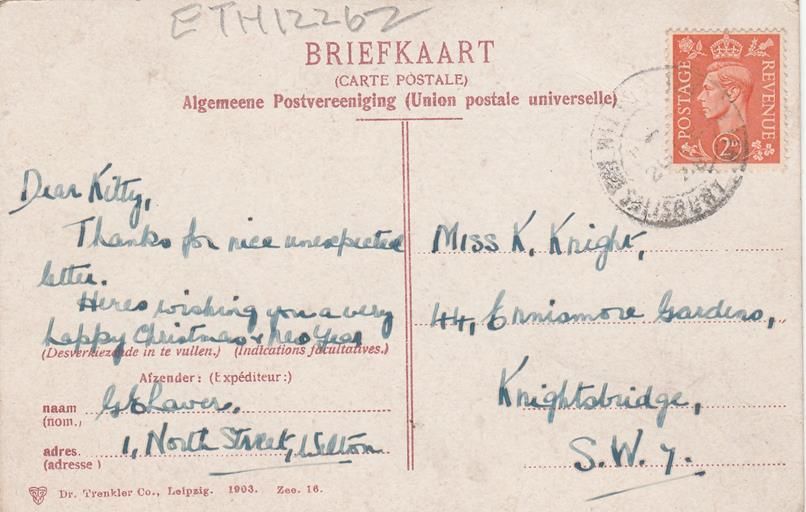 ETH12262
BRIEFKAART
(CARTE POSTALE)
Algemeene Postvereeniging (Union postale universelle)
POSTAGE REVENUE
2D
Dear Kitty,
Thanks for nice unexpected
letter.
Heres wishing you a very
happy Christmas & New Year
(Desverkiezende in te vullen.) (Indications facultatives.)
Afzender: (Expéditeur:)
naam G E Laver.
(nom.)
adres. 1, North Street, Wilton
(adresse)
Dr. Trenkler Co., Leipzig. 1903. Zee. 16.
Miss K. Knight,
44, Ennismore Gardens,
Knightsbridge,
S.W.7.